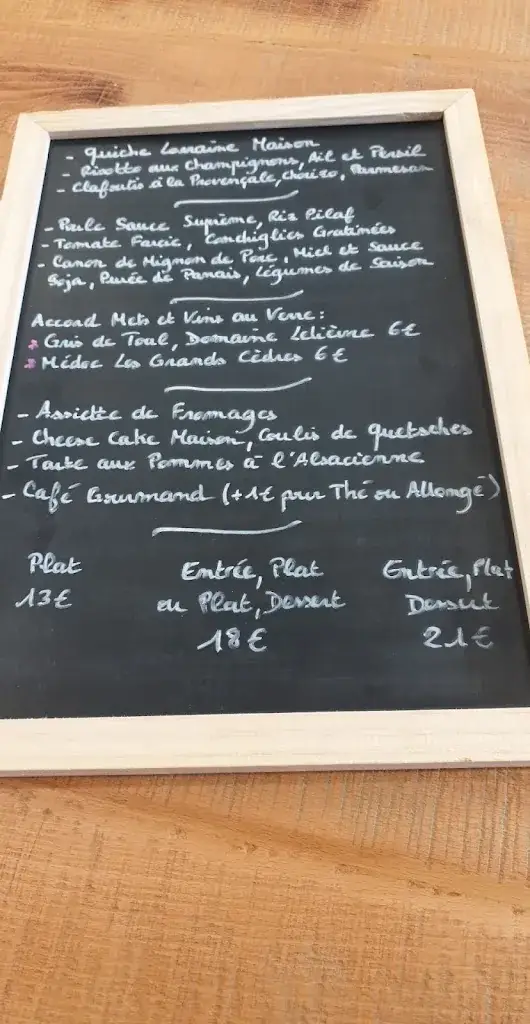 - Quiche Lorraine Maison
- Risotto aux Champignons, Ail et Persil
- Clafoutis à la Provençale, Chorizo, Parmesan
- Poule Sauce Suprême, Riz Pilaf
- Tomate Farcie, Conchiglies Gratinées
- Canon de Mignon de Porc, Miel et Sauce
Soja, Purée de Panais, Légumes de Saison
Accord Mets et Vins au Verre:
* Gris de Toul, Domaine Lelièvre 6€
* Médoc Les Grands Cèdres 6€
- Assiette de Fromages
- Cheese Cake Maison, Coulis de quetsches
- Tarte aux Pommes à l'Alsacienne
- Café Gourmand (+1€ pour Thé ou Allongé)
Plat
13€
Entrée, Plat
ou Plat, Dessert
18€
Entrée, Plat
Dessert
21€